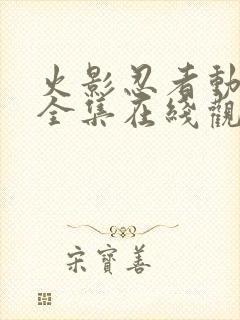 火影忍者動
全集在綫觀
宋寶善